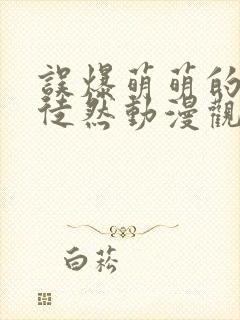 誤爆萌萌的
徒然動漫觀
白菘